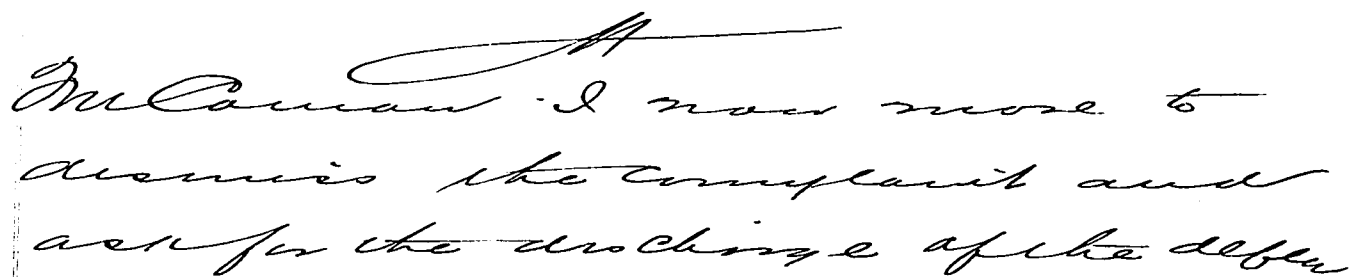 Mr Conian I now move to
dismiss the complaint and
ask for the discharge of the